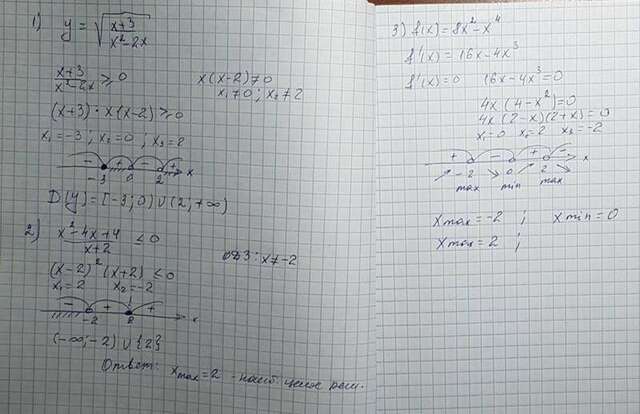 1) y = √((x+3)/(x²-2x))
(x+3)/(x²-2x) ≥ 0
x(x-2) ≠ 0
x₁ ≠ 0; x₂ ≠ 2
(x+3)·x(x-2) ≥ 0
x₁ = -3; x₂ = 0; x₃ = 2
- + - +
-3 0 2 x
D(y) = [-3; 0) ∪ (2; +∞)
2) (x²-4x+4)/(x+2) ≤ 0
ОДЗ: x ≠ -2
(x-2)²(x+2) ≤ 0
x₁ = 2 x₂ = -2
- + +
-2 2 x
(-∞; -2) ∪ {2}
Ответ: xmax = 2 - наиб целое реш.
3) f(x) = 8x² - x⁴
f'(x) = 16x - 4x³
f'(x) = 0 16x - 4x³ = 0
4x (4 - x²) = 0
4x (2-x)(2+x) = 0
x₁ = 0 x₂ = 2 x₃ = -2
+ - + -
↗ -2 ↘ 0 ↗ 2 ↘ x
max min max
xmax = -2 ; xmin = 0
xmax = 2 ;